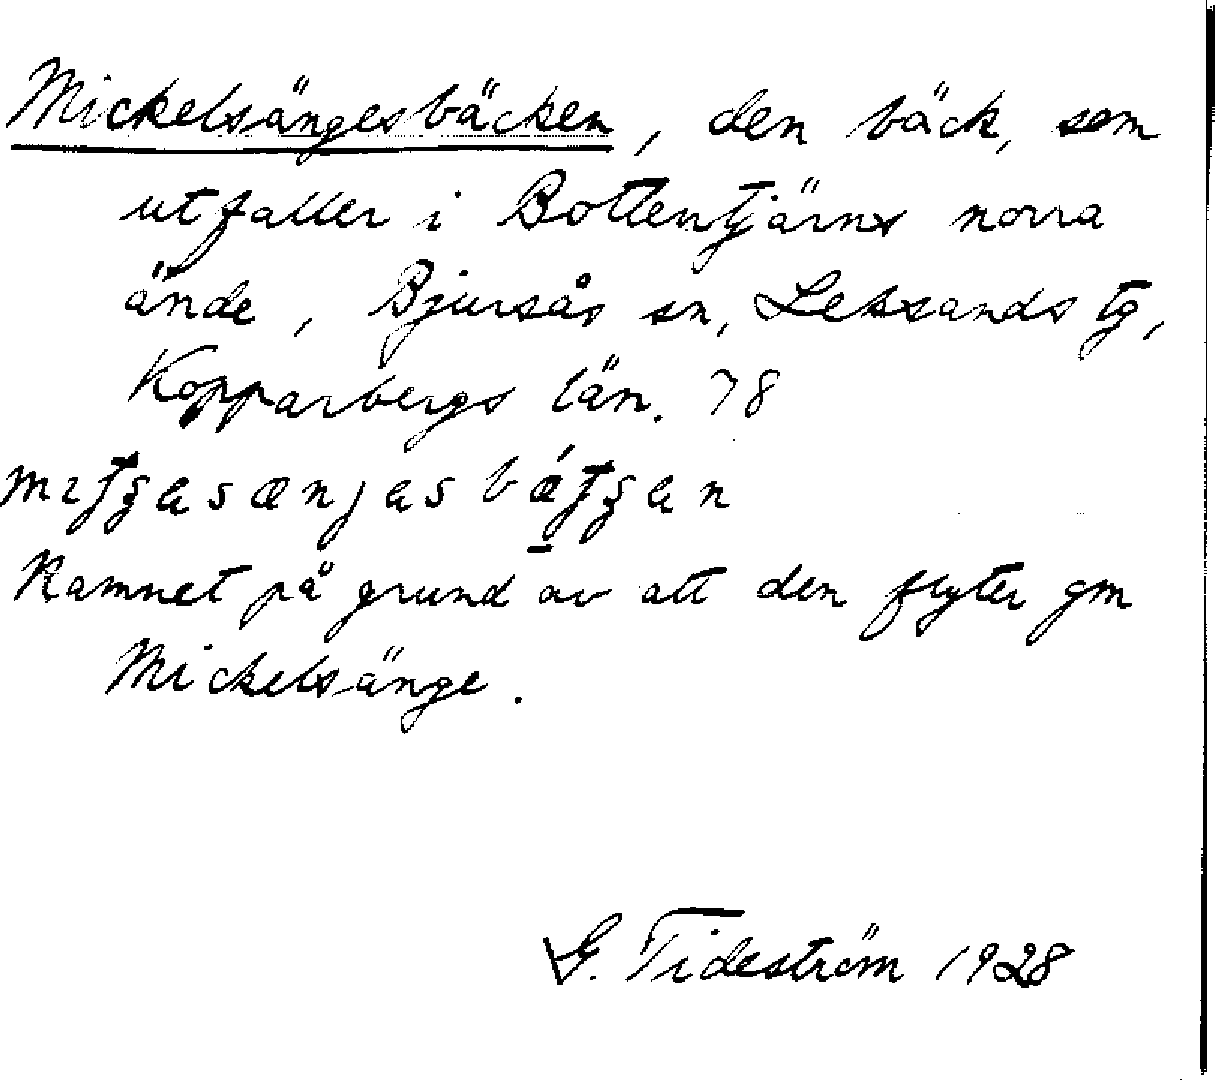 Mickelsängesbäcken, den bäck, som
utfaller i Bottentjärns norra
ände, Bjursås sn, Leksands tg,
Kopparbergs län. 78
Namnet på grund av att den flyter gm
Mickelsänge.
G. Tideström 1928